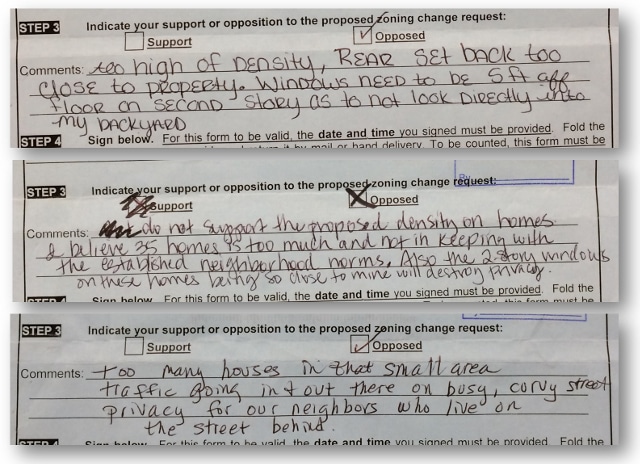 STEP 3
Indicate your support or opposition to the proposed zoning change request:
Support
Opposed
Comments: too high of DENSITY, REAR SET back too
close to property. Windows need to be 5 ft off
floor on second story as to not look directly into
my BACKYARD
STEP 4
Sign below. For this form to be valid, the date and time you signed must be provided. Fold the
mail or hand delivery. To be counted, this form must be
STEP 3
Indicate your support or opposition to the proposed zoning change request:
Support
Opposed
Comments: do not support the proposed density on homes
I believe 35 homes is too much and not in keeping with
the established neighborhood norms. Also the 2 story windows
on these homes being so close to mine will destroy privacy.
Sign below. For this form to be valid, the date and time you signed must be provided. Fold the
this form must be
STEP 3
Indicate your support or opposition to the proposed zoning change request:
Support
Opposed
Comments: too many houses in that small area
traffic going in + out there on busy, curvy street
privacy for our neighbors who live on
the street behind.
STEP 4
Sign below. For this form to be valid, the date and time you signed must be provided. Fold the